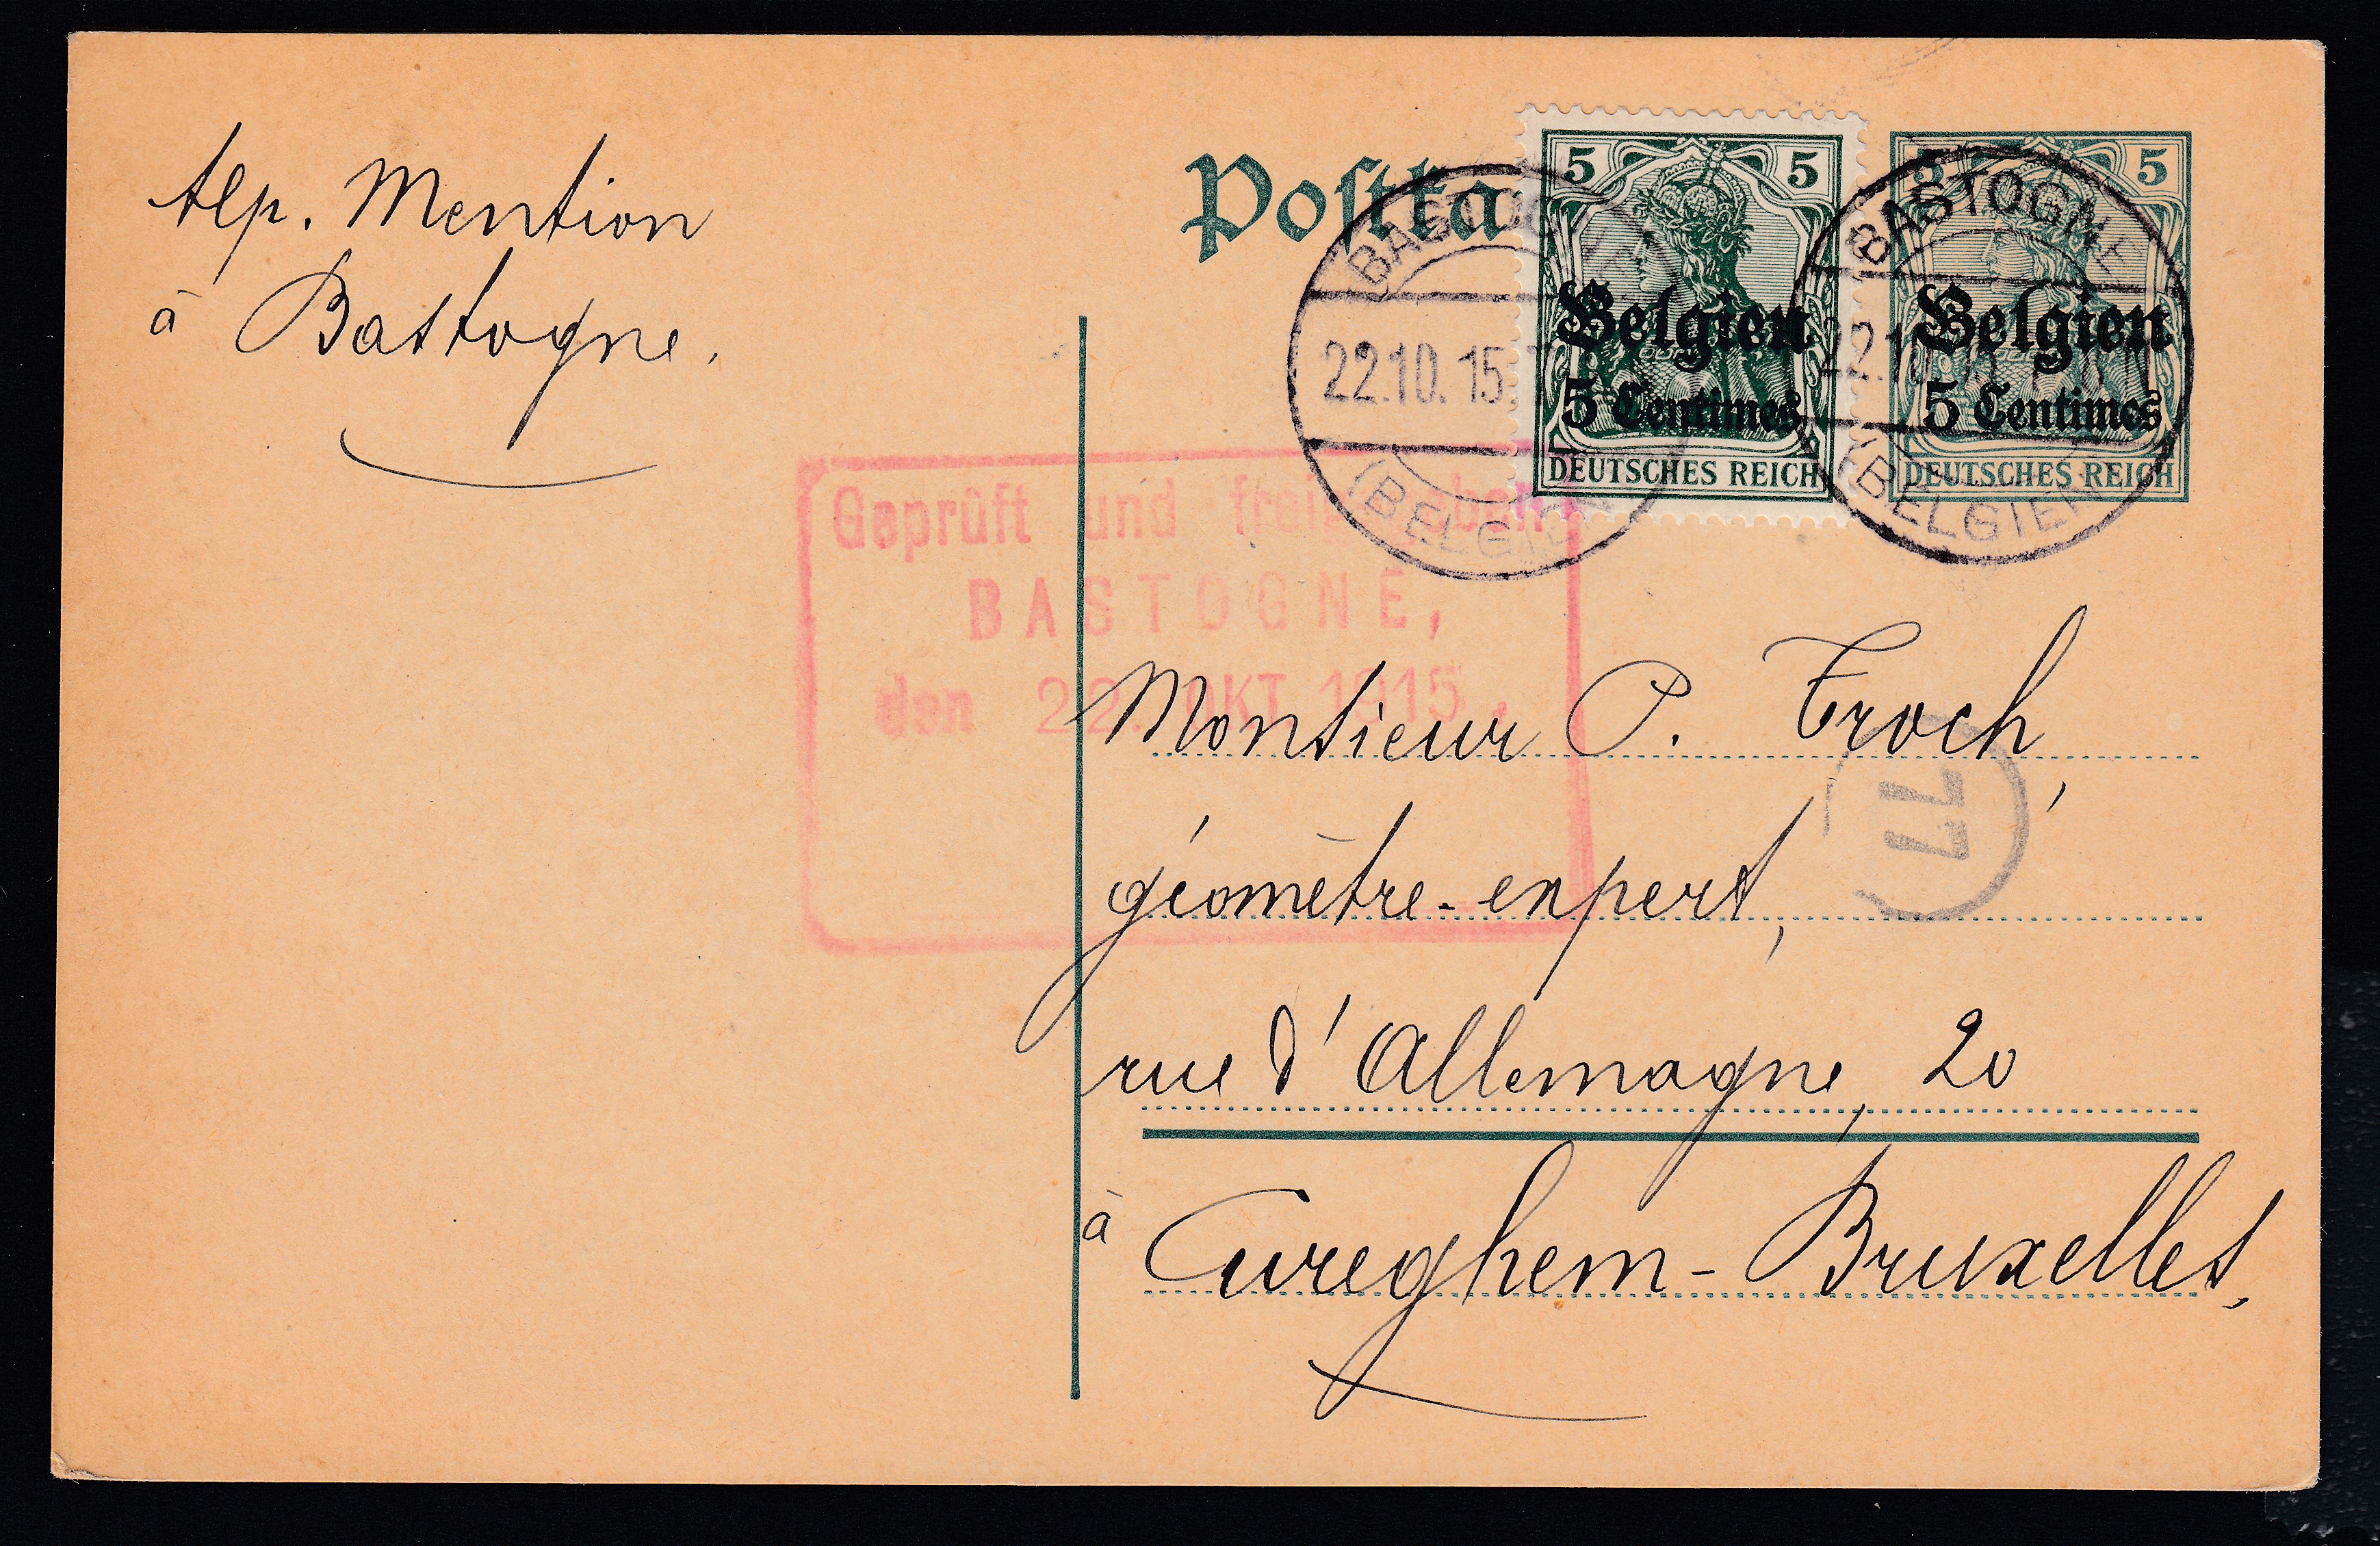 Alp. Mention
à Bastogne.
Postka
5 5
Belgien
5 Centimes
DEUTSCHES REICH
5 5
Belgien
5 Centimes
DEUTSCHES REICH
BASTOGNE
22.10.15.
(BELGIEN
BASTOGNE
22.10.15. 7-8 N
(BELGIEN)
Geprüft und freigegeben
BASTOGNE,
den 22. OKT. 1915.
Monsieur P. Troch,
géomètre-expert,
rue d'Allemagne, 20
à Cureghem-Bruxelles,